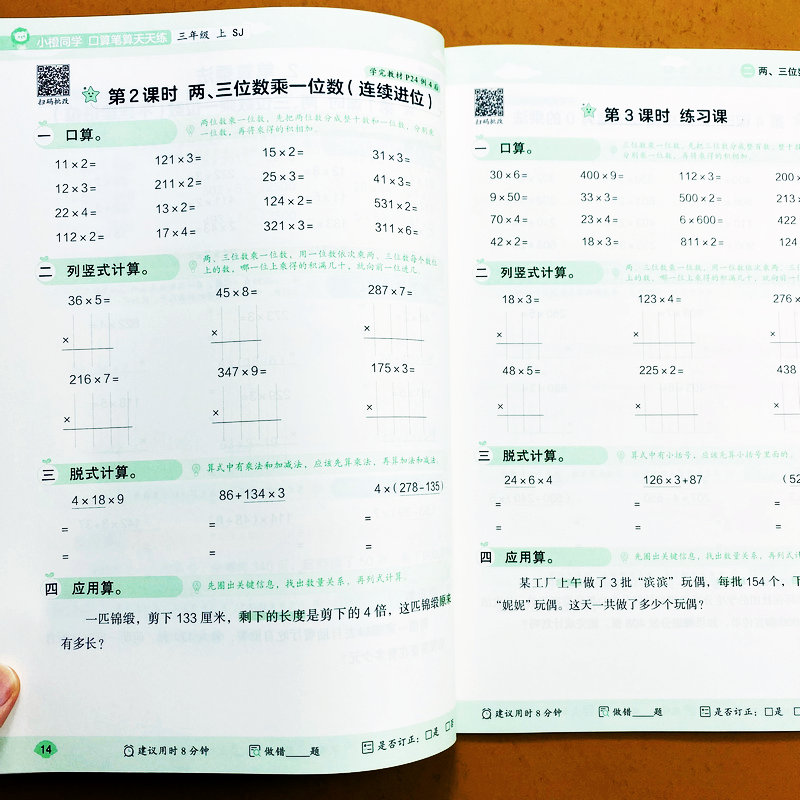 小橙同学 口算笔算天天练 三年级 上 SJ
学完教材 P24 例 4 后
扫码批改
第2课时 两、三位数乘一位数(连续进位)
一 口算。
两位数乘一位数,先把两位数分成整十数和一位数,分别乘
一位数,再将乘得的积相加。
11×2= 121×3= 15×2= 31×3=
12×3= 211×2= 25×3= 41×3=
22×4= 13×2= 124×2= 531×2=
112×2= 17×4= 321×3= 311×6=
二 列竖式计算。
两、三位数乘一位数,用一位数依次乘两、三位数每个数位
上的数,哪一位上乘得的积满几十,就向前一位进几。
36×5= 45×8= 287×7=
× × ×
216×7= 347×9= 175×3=
× × ×
三 脱式计算。
算式中有乘法和加减法,应该先算乘法,再算加法和减法。
4×18×9 86+134×3 4×(278-135)
= = =
= = =
四 应用算。
先圈出关键信息,找出数量关系,再列式计算。
一匹锦缎,剪下 133 厘米,剩下的长度是剪下的 4 倍,这匹锦缎原来
有多长?
14 建议用时 8 分钟 做错____题 是否订正:□是 □
二 两、三位数
扫码批改
第3课时 练习课
一 口算。
30×6= 400×9= 112×3= 200×
9×50= 33×3= 500×2= 213×
70×4= 23×4= 6×600= 422
42×2= 18×3= 811×2= 124
二 列竖式计算。
两、三位数乘一位数,用一位数依次乘两、三位
上的数,哪一位上乘得的积满几十,就向前一位
18×3= 123×4= 276×
× × ×
48×5= 225×2= 438
× × ×
三 脱式计算。
算式中有小括号,应该先算小括号里面的。
24×6×4 126×3+87 (52
= =
= =
四 应用算。
先圈出关键信息,找出数量关系,再列式计
某工厂上午做了 3 批“滨滨”玩偶,每批 154 个,下
“妮妮”玩偶。这天一共做了多少个玩偶?
建议用时 8 分钟 做错____题 是否订正:□是